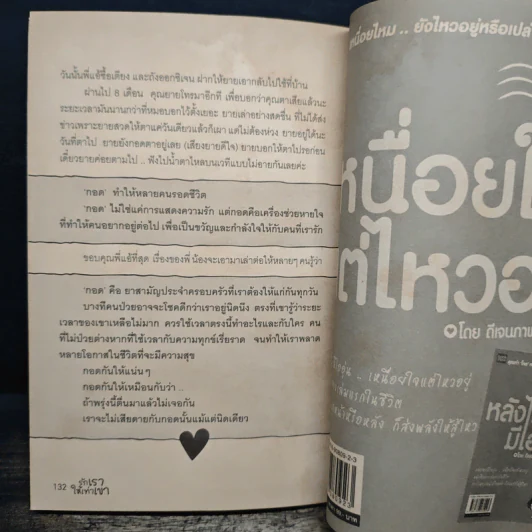 วันนั้นพี่แอ้ซื้อเตียง และถังออกซิเจน ฝากให้ยายเอากลับไปใช้ที่บ้าน
ผ่านไป 8 เดือน คุณยายโทรมาอีกที เพื่อบอกว่าคุณตาเสียแล้วนะ
ระยะเวลามันนานกว่าที่หมอบอกไว้ตั้งเยอะ ยายเล่าอย่างสดชื่น ที่ไม่ได้ส่ง
ข่าวเพราะยายสวดให้ตาแค่วันเดียวแล้วก็เผา แต่ไม่ต้องห่วง ยายอยู่ได้นะ
วันที่ตาไป ยายยังกอดตาอยู่เลย (เสียงยายดีใจ) ยายบอกให้ตาไปรอก่อน
เดี๋ยวยายค่อยตามไป .. ฟังไปน้ำตาไหลบนเวทีแบบไม่อายกันเลยค่ะ
'กอด' ทำให้หลายคนรอดชีวิต
'กอด' ไม่ใช่แค่การแสดงความรัก แต่กอดคือเครื่องช่วยหายใจ
ที่ทำให้คนอยากอยู่ต่อไป เพื่อเป็นขวัญและกำลังใจให้กับคนที่เรารัก
ขอบคุณพี่แอ้ที่สุด เรื่องของพี่ น้องจะเอามาเล่าต่อให้หลายๆ คนรู้ว่า
'กอด' คือ ยาสามัญประจำครอบครัวที่เราต้องให้แก่กันทุกวัน
บางทีคนป่วยอาจจะโชคดีกว่าเราอยู่นิดนึง ตรงที่เขารู้ว่าระยะ
เวลาของเขาเหลือไม่มาก ควรใช้เวลาตรงนี้ทำอะไรและกับใคร คน
ที่ไม่ป่วยต่างหากที่ใช้เวลากับความทุกข์เรี่ยราด จนทำให้เราพลาด
หลายโอกาสในชีวิตที่จะมีความสุข
กอดกันให้แน่นๆ
กอดกันให้เหมือนกับว่า ..
ถ้าพรุ่งนี้ตื่นมาแล้วไม่เจอกัน
เราจะไม่เสียดายกับกอดนั้นแม้แต่นิดเดียว
132
หนื่อยไหม .. ยังไหวอยู่หรือเปล่
หนื่อยใ
ต่ไหวอ
โดย ดีเจนภา
... เหนื่อยใจแต่ไหวอยู่
ในชีวิต
หรือหลัง ก็ส่งพลังให้สู้ไหว
หลังไ
มีไ